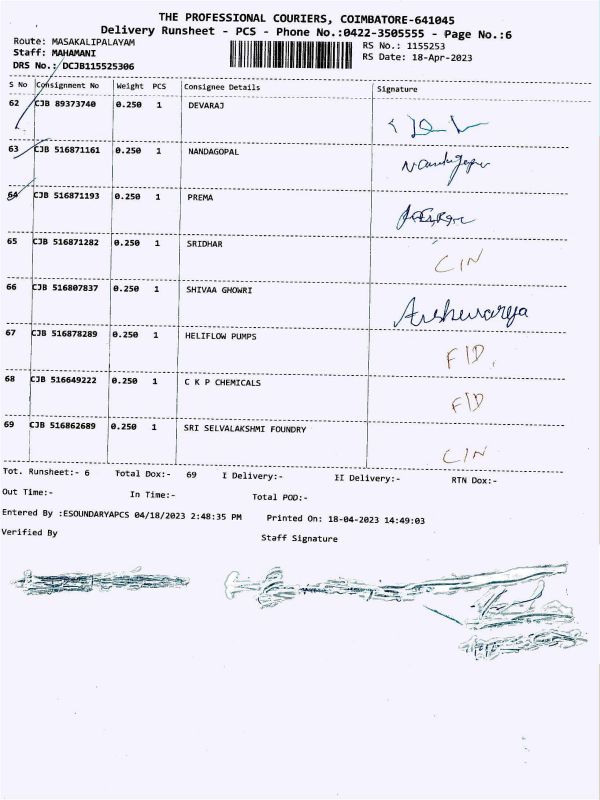 THE PROFESSIONAL COURIERS, COIMBATORE-641045
Delivery Runsheet - PCS - Phone No.:0422-3505555 - Page No.:6
Route: MASAKALIPALAYAM RS No.: 1155253
Staff: MAHAMANI RS Date: 18-Apr-2023
DRS No.: DCJB115525306
S No Consignment No Weight PCS Consignee Details Signature
62 CJB 89373740 0.250 1 DEVARAJ
63 CJB 516871161 0.250 1 NANDAGOPAL Nandagopal
64 CJB 516871193 0.250 1 PREMA
65 CJB 516871282 0.250 1 SRIDHAR C/N
66 CJB 516807837 0.250 1 SHIVAA GHOWRI Aishwarya
67 CJB 516878289 0.250 1 HELIFLOW PUMPS F/D.
68 CJB 516649222 0.250 1 C K P CHEMICALS F/D
69 CJB 516862689 0.250 1 SRI SELVALAKSHMI FOUNDRY C/N
Tot. Runsheet:- 6 Total Dox:- 69 I Delivery:- II Delivery:- RTN Dox:-
Out Time:- In Time:- Total POD:-
Entered By :ESOUNDARYAPCS 04/18/2023 2:48:35 PM Printed On: 18-04-2023 14:49:03
Verified By Staff Signature